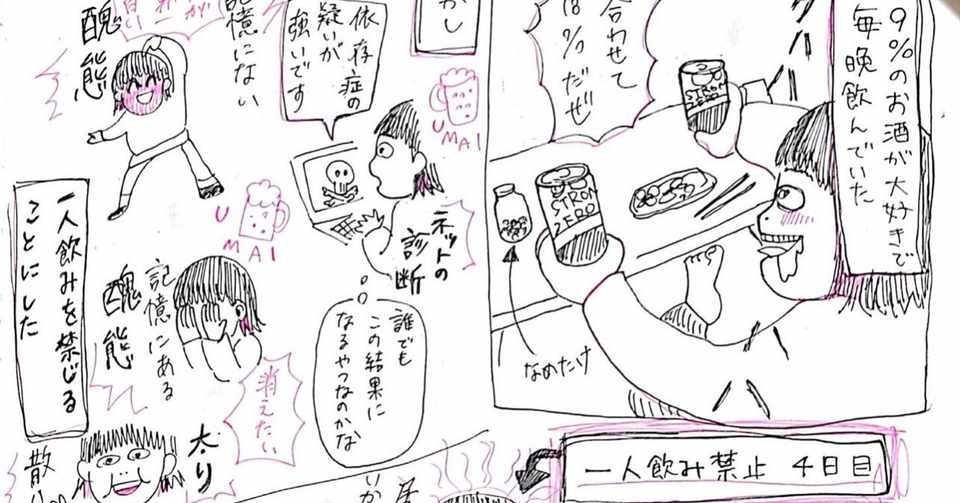 9%のお酒が大好きで
毎晩飲んでいた
合わせて
18%だぜ
STRON
ZERO
なめたけ
かし
UMAI
依存症の
疑いが
強いです
ネットの
診断
誰でも
この結果に
なるやつなのかな
が
記憶にない
醜態
UMAI
記憶にある
醜態
消えたい
一人飲みを禁じる
ことにした
太り
散
一人飲み禁止 4日目